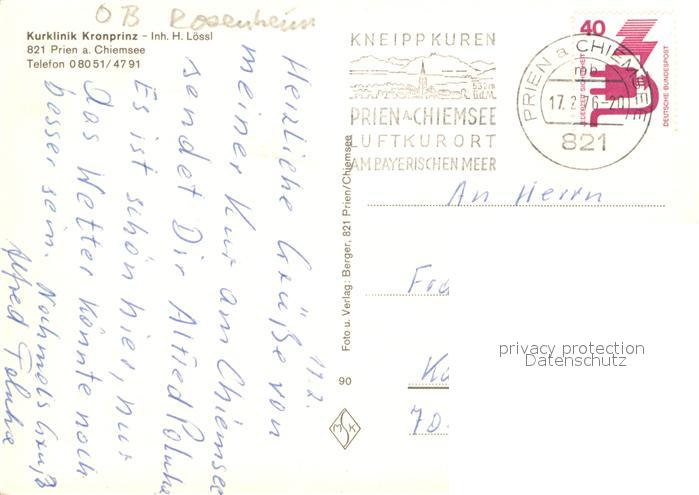 OB Rosenheim
Kurklinik Kronprinz – Inh. H. Lössl
821 Prien a. Chiemsee
Telefon 0 80 51 / 47 91
17.2.
Herzliche Grüße von
meiner Kur am Chiemsee
sendet Dir Alfred
Es ist schön hier, nur
das Wetter könnte noch
besser sein. Nochmals Gruß
Alfred
Foto u. Verlag: Berger, 821 Prien/Chiemsee
90
MSK
KNEIPPKUREN
532m
ü.d.M.
PRIEN A CHIEMSEE
LUFTKURORT
AM BAYERISCHEN MEER
PRIEN a CHIEMSEE
mb
17.2.76-20
821
40
JEDERZEIT SICHERHEIT
DEUTSCHE BUNDESPOST
An Herrn
Fra
Ko
70
privacy protection
Datenschutz